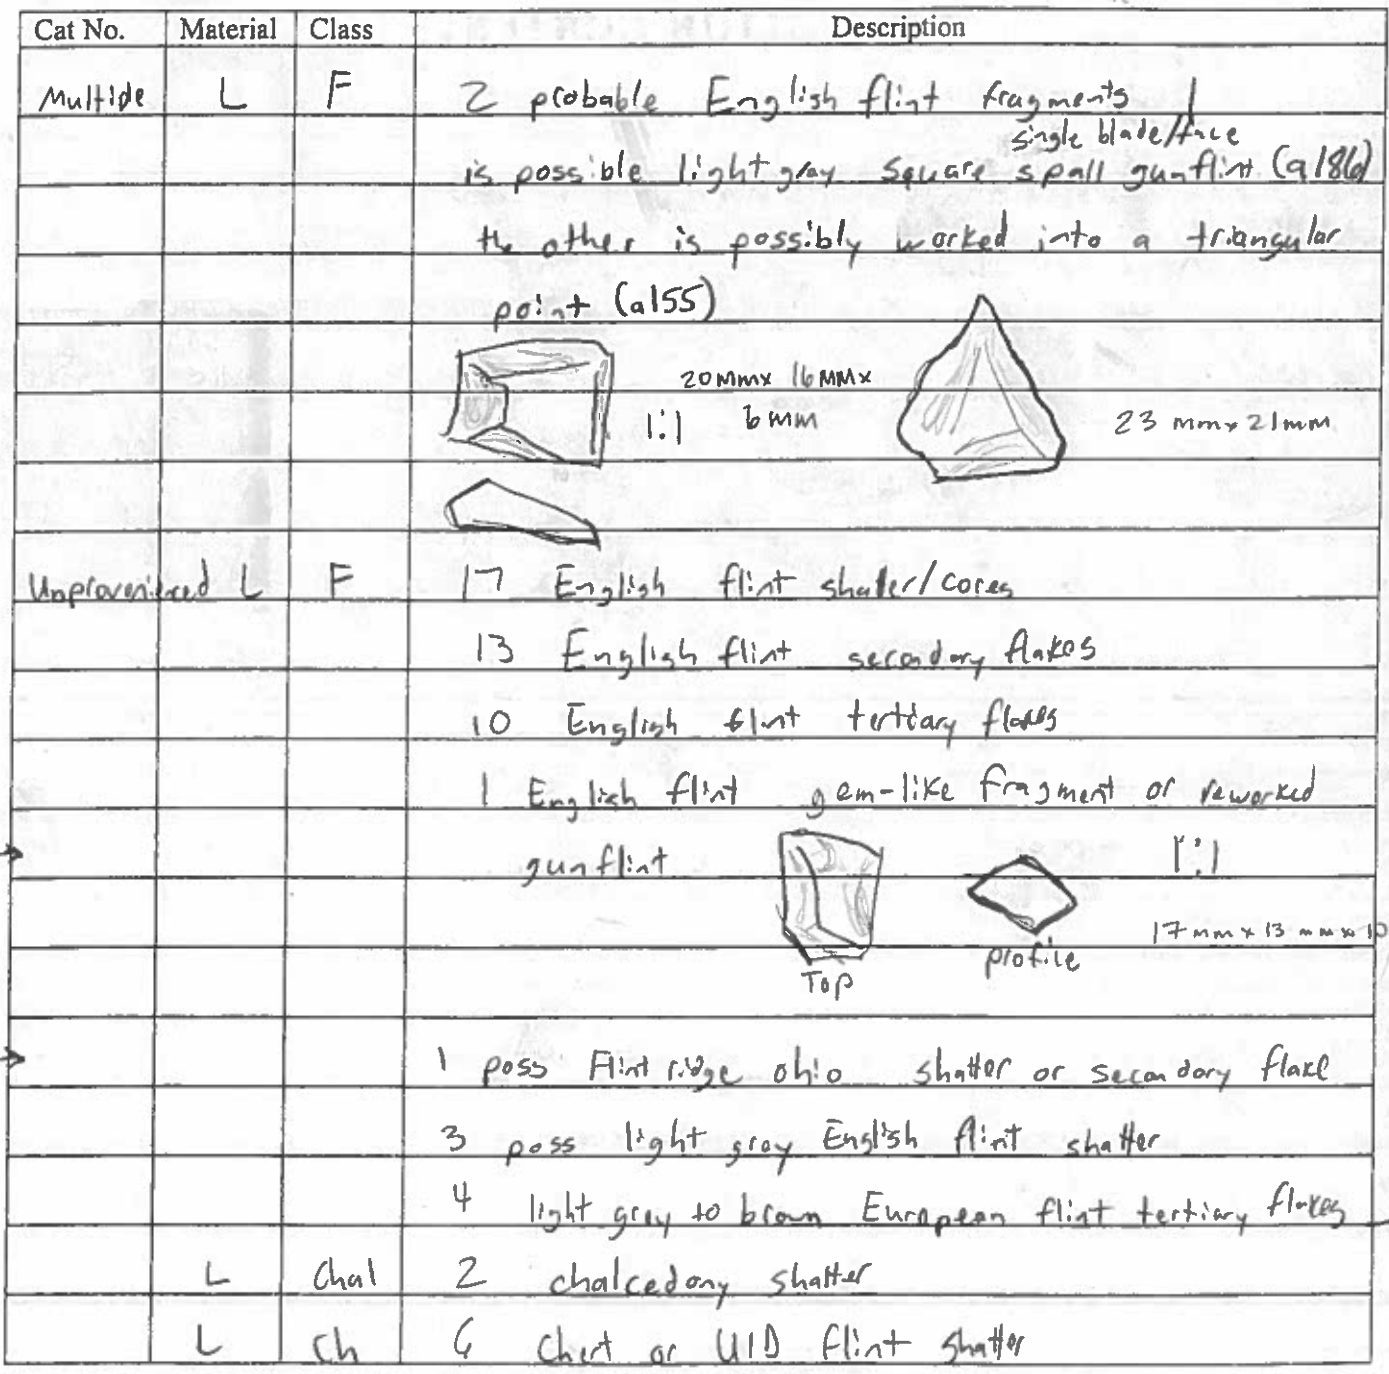 Cat No. Material Class Description
Multiple L F 2 probable English flint fragments 1
single blade/face
is possible light gray square spall gunflint (a186)
the other is possibly worked into a triangular
point (a155)
20mm x 16mm x
1:1 6mm 23 mm x 21mm
Unprovenienced L F 17 English flint shatter/cores
13 English flint secondary flakes
10 English flint tertiary flakes
1 English flint gem-like fragment or reworked
gunflint 1:1
17mm x 13mm x 10
Top profile
1 poss Flint ridge ohio shatter or secondary flake
3 poss light gray English flint shatter
4 light grey to brown European flint tertiary flakes
L Chal 2 chalcedony shatter
L Ch 6 Chert or UID flint shatter